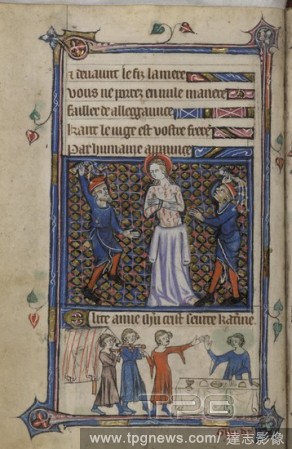 z deuaunt le fiz la mere
vous ne purez en nule manere
faillir de allegaunce
kant le iuge est vostre frere
par humaine
anme ihu crist
TPG
www.tpgnews.com / 達志影像